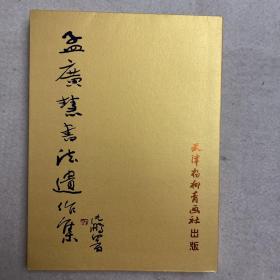 孟廣慧書法遺作集
天津楊柳青画社出版